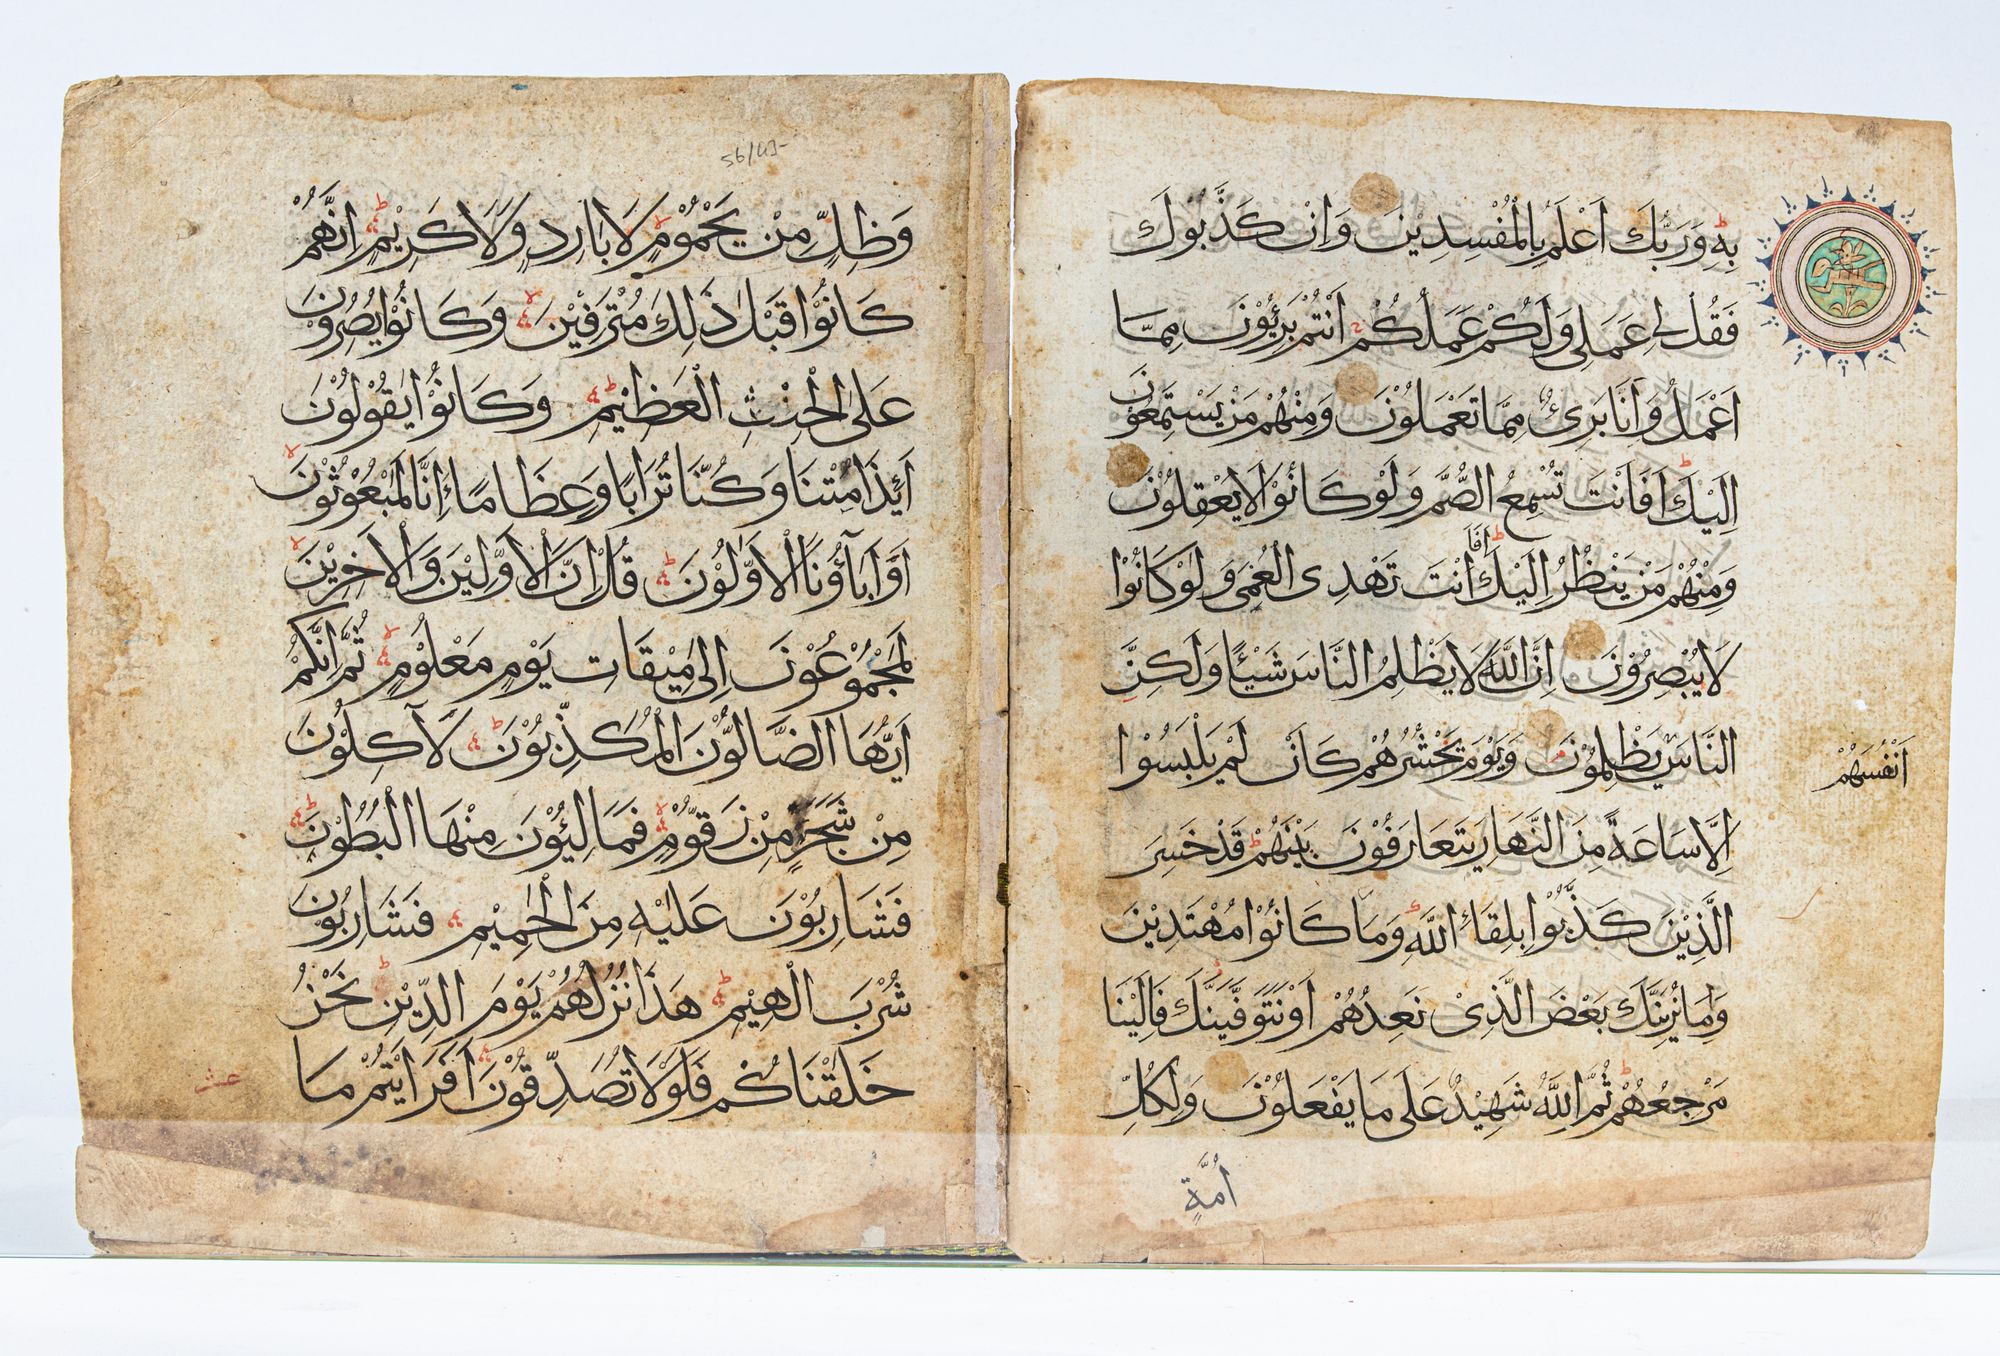 بِهٖ وَرَبُّكَ اَعْلَمُ بِالْمُفْسِدِيْنَ وَاِنْ كَذَّبُوْكَ
فَقُلْ لِى عَمَلِى وَلَكُمْ عَمَلُكُمْ اَنْتُمْ بَرِيْئُوْنَ مِمَّا
اَعْمَلُ وَاَنَا بَرِىْءٌ مِمَّا تَعْمَلُوْنَ وَمِنْهُمْ مَنْ يَسْتَمِعُوْنَ
اِلَيْكَ اَفَاَنْتَ تُسْمِعُ الصُّمَّ وَلَوْ كَانُوْا لَا يَعْقِلُوْنَ
اَفَا
وَمِنْهُمْ مَنْ يَنْظُرُ اِلَيْكَ اَنْتَ تَهْدِى الْعُمْىَ وَلَوْ كَانُوْا
لَا يُبْصِرُوْنَ اِنَّ اللّٰهَ لَا يَظْلِمُ النَّاسَ شَيْئًا وَلٰكِنَّ
النَّاسَ يَظْلِمُوْنَ وَيَوْمَ نَحْشُرُهُمْ كَاَنْ لَمْ يَلْبَسُوْا
اَنْفُسَهُمْ
اِلَّا سَاعَةً مِنَ النَّهَارِ يَتَعَارَفُوْنَ بَيْنَهُمْ قَدْ خَسِرَ
الَّذِيْنَ كَذَّبُوْا بِلِقَاءِ اللّٰهِ وَمَا كَانُوْا مُهْتَدِيْنَ
وَاِمَّا نُرِيَنَّكَ بَعْضَ الَّذِىْ نَعِدُهُمْ اَوْ نَتَوَفَّيَنَّكَ فَاِلَيْنَا
مَرْجِعُهُمْ ثُمَّ اللّٰهُ شَهِيْدٌ عَلٰى مَا يَفْعَلُوْنَ وَلِكُلِّ
اُمَّةٍ
56/43-
وَظِلٍّ مِنْ يَحْمُوْمٍ لَا بَارِدٍ وَلَا كَرِيْمٍ اِنَّهُمْ
كَانُوْا قَبْلَ ذٰلِكَ مُتْرَفِيْنَ وَكَانُوْا يُصِرُّوْنَ
عَلَى الْحِنْثِ الْعَظِيْمِ وَكَانُوْا يَقُوْلُوْنَ
اَئِذَا مِتْنَا وَكُنَّا تُرَابًا وَعِظَامًا ءَاِنَّا لَمَبْعُوْثُوْنَ
اَوَاٰبَاؤُنَا الْاَوَّلُوْنَ قُلْ اِنَّ الْاَوَّلِيْنَ وَالْاٰخِرِيْنَ
لَمَجْمُوْعُوْنَ اِلٰى مِيْقَاتِ يَوْمٍ مَعْلُوْمٍ ثُمَّ اِنَّكُمْ
اَيُّهَا الضَّالُّوْنَ الْمُكَذِّبُوْنَ لَاٰكِلُوْنَ
مِنْ شَجَرٍ مِنْ زَقُّوْمٍ فَمَالِئُوْنَ مِنْهَا الْبُطُوْنَ
فَشَارِبُوْنَ عَلَيْهِ مِنَ الْحَمِيْمِ فَشَارِبُوْنَ
شُرْبَ الْهِيْمِ هٰذَا نُزُلُهُمْ يَوْمَ الدِّيْنِ نَحْنُ
خَلَقْنَاكُمْ فَلَوْلَا تُصَدِّقُوْنَ اَفَرَاَيْتُمْ مَا
عشر